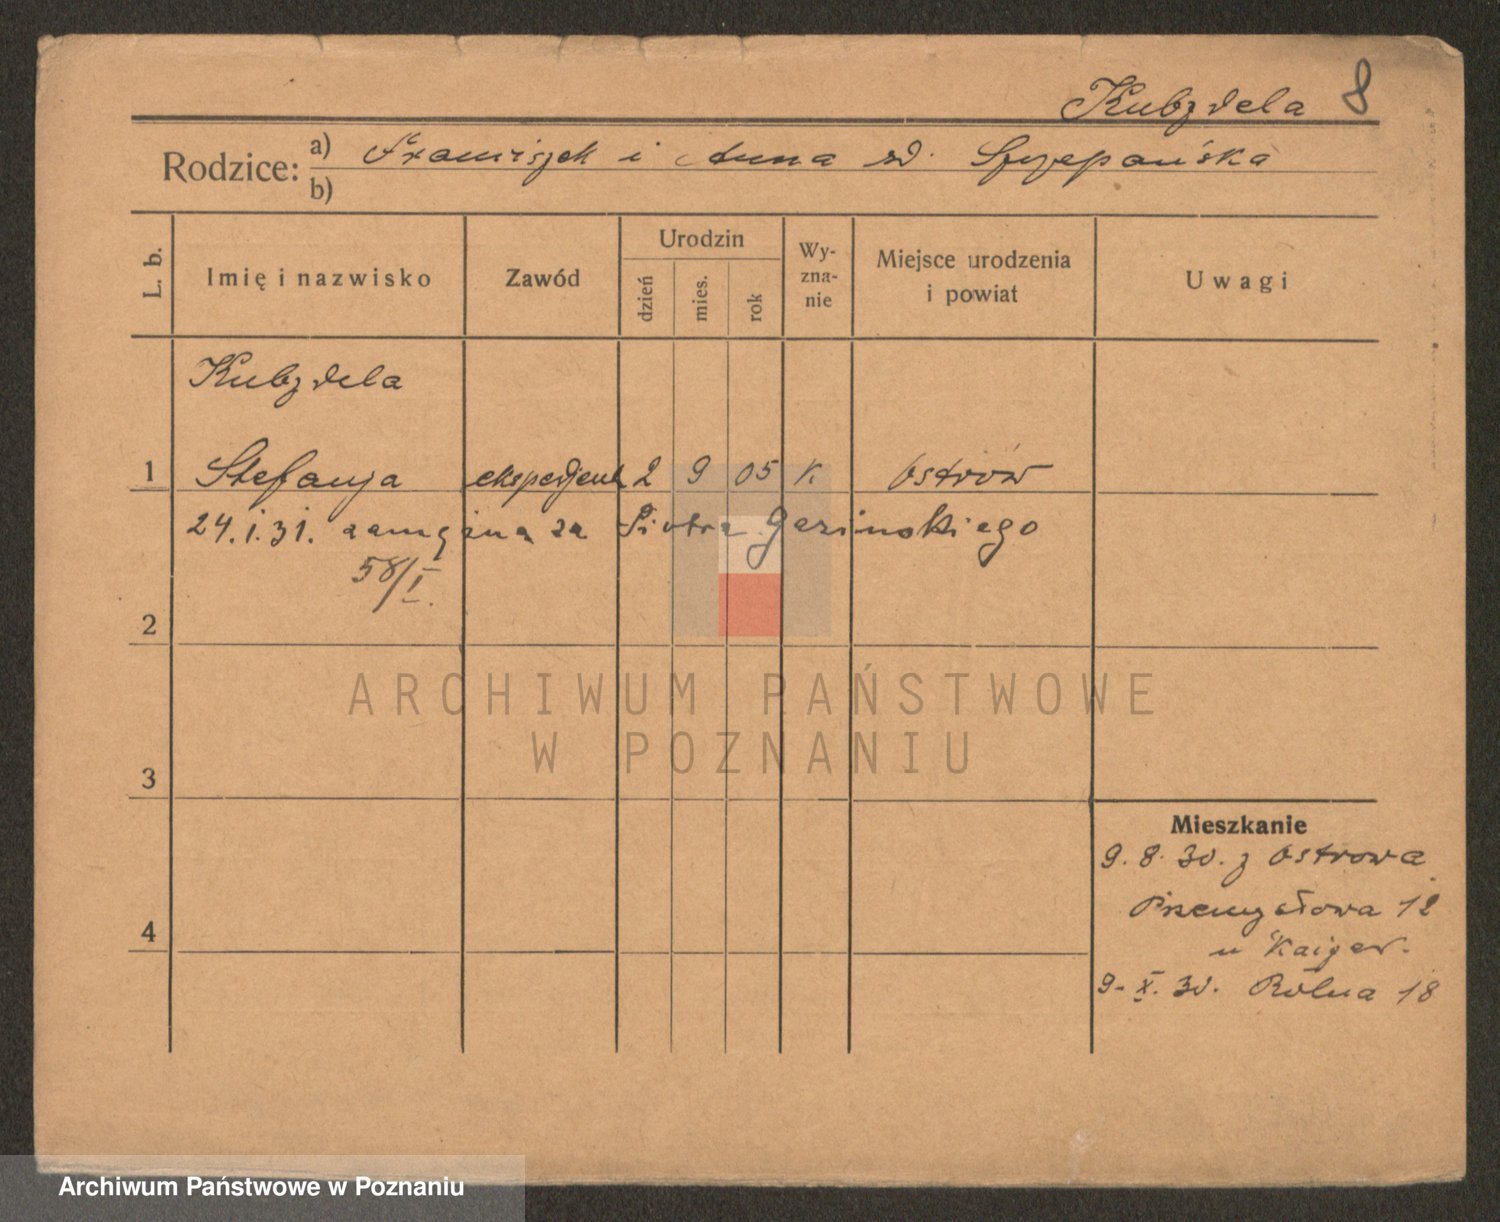 Kubzdela 8
Rodzice: a) Franciszek i Anna zd. Szczepańska
b)
L. b. Imię i nazwisko Zawód Urodzin dzień mies. rok Wy-zna-nie Miejsce urodzenia i powiat Uwagi
Kubzdela
1 Stefanja ekspedjent 2 9 05 k. Ostrów
24.I.31. zamężna za Piotra Gasinskiego
58/I.
2
ARCHIWUM PAŃSTWOWE
W POZNANIU
3
Mieszkanie
9. 8. 30. z Ostrowa
Przemysłowa 12
4
u Kaiser.
9-X. 30. Rólna 18
Archiwum Państwowe w Poznaniu